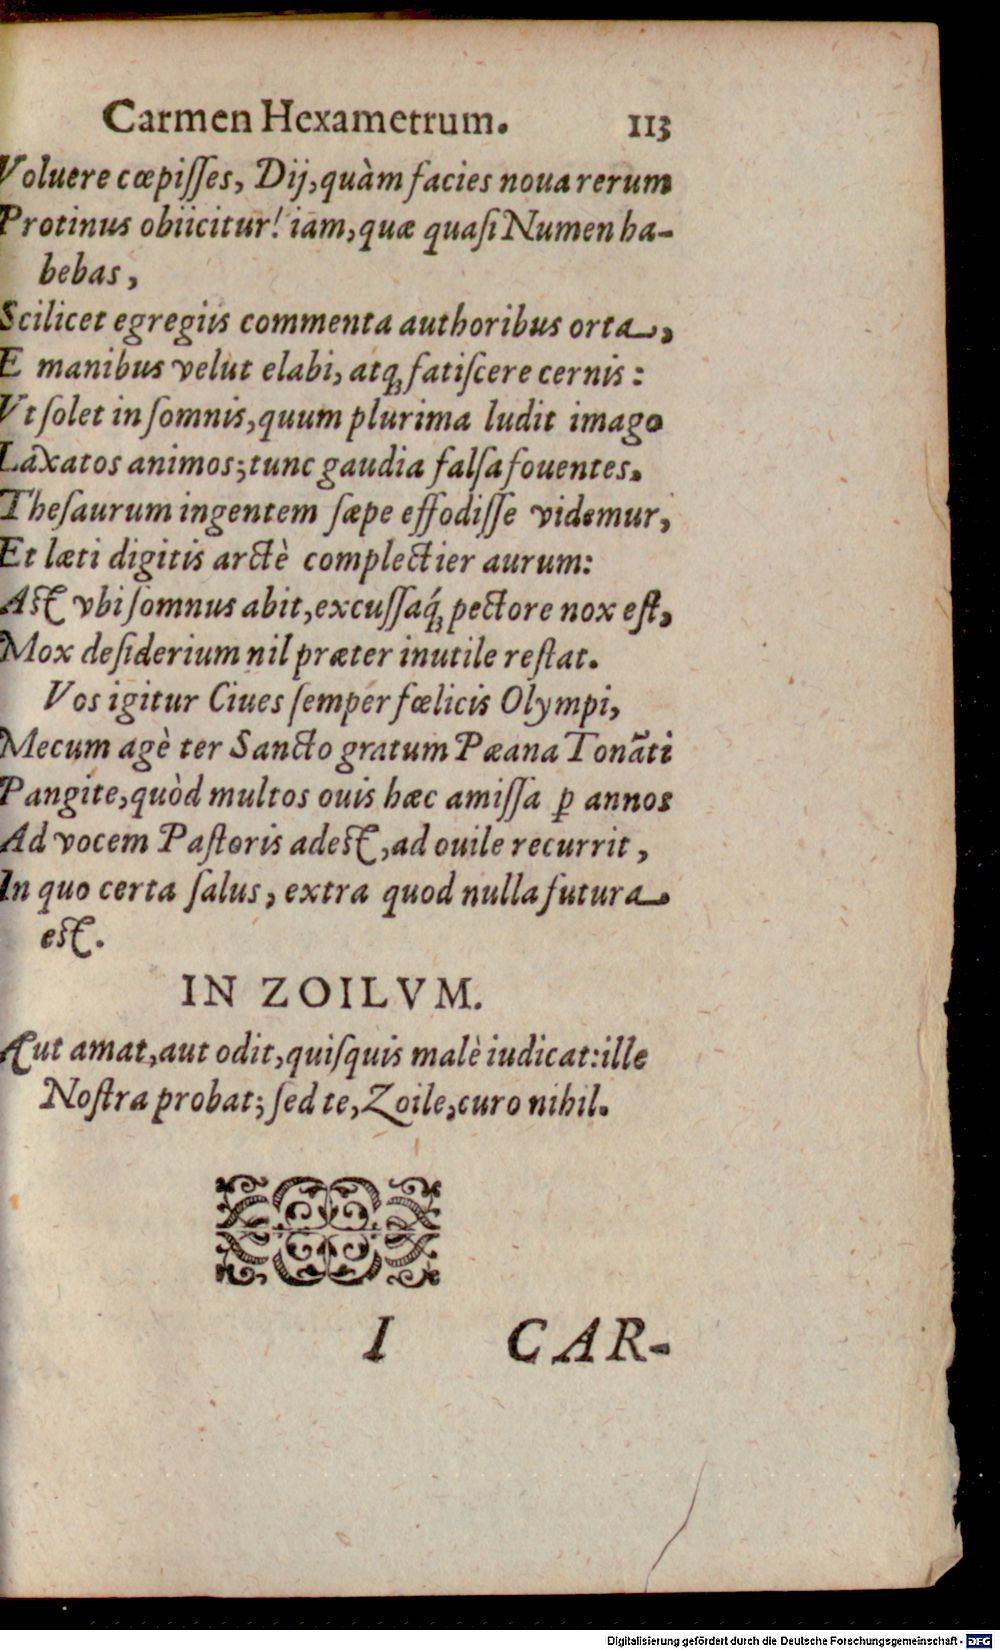 Carmen Hexametrum. 113
Voluere cœpisſes, Dij, quàm facies noua rerum
Protinus obiicitur! iam, quæ quaſi Numen ha-
bebas,
Scilicet egregiis commenta authoribus orta,
E manibus velut elabi, atq́; fatiſcere cernis:
Vt ſolet in ſomnis, quum plurima ludit imago
Laxatos animos; tunc gaudia falſa fouentes.
Theſaurum ingentem ſæpe effodiſſe videmur,
Et læti digitis arctè complectier aurum:
Aſt vbi ſomnus abit, excuſſaq́; pectore nox eſt,
Mox deſiderium nil præter inutile reſtat.
Vos igitur Ciues ſemper fœlicis Olympi,
Mecum agè ter Sancto gratum Pæana Tonāti
Pangite, quòd multos ouis hæc amiſſa ꝑ annos
Ad vocem Paſtoris adeſt, ad ouile recurrit,
In quo certa ſalus, extra quod nulla futura
eſt.
IN ZOILVM.
Aut amat, aut odit, quiſquis malè iudicat: ille
Noſtra probat; ſed te, Zoile, curo nihil.
I CAR-
Digitalisierung gefördert durch die Deutsche Forschungsgemeinschaft - DFG